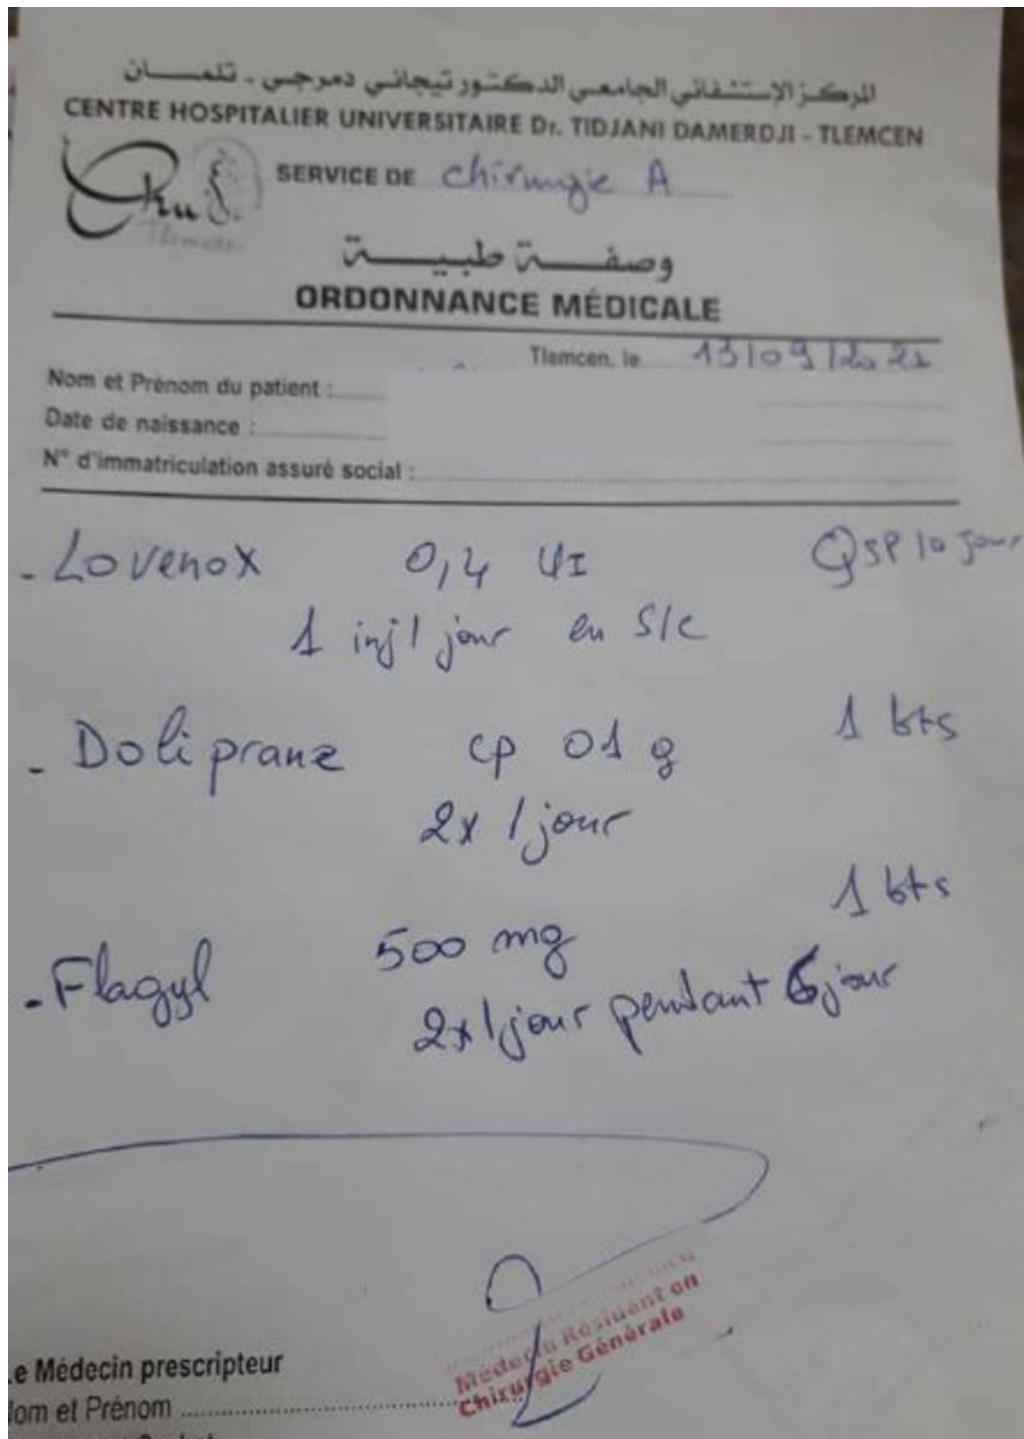 المركز الإستشفائي الجامعي الدكتور تيجاني دمرجي - تلمسان
CENTRE HOSPITALIER UNIVERSITAIRE Dr. TIDJANI DAMERDJI - TLEMCEN
Chu
Tlemcen
SERVICE DE chirurgie A
وصفة طبية
ORDONNANCE MÉDICALE
Tlemcen, le 13/09/2021
Nom et Prénom du patient :
Date de naissance :
N° d'immatriculation assuré social :
- Lovenox 0,4 UI QSP 10 jour
1 inj/jour en S/C
- Doliprane cp 01 g 1 bts
2x/jour
1 bts
- Flagyl 500 mg
2x/jour pendant 6 jour
e Médecin prescripteur
Médecin Résident en
Chirurgie Générale
om et Prénom